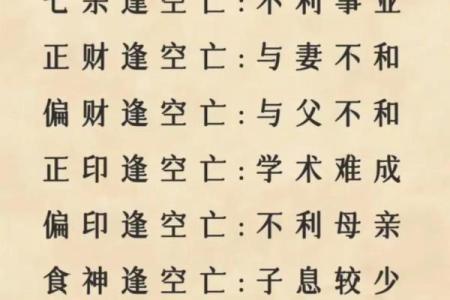 七杀逢空亡:不利事业
正财逢空亡:与妻不和
偏财逢空亡:与父不和
正印逢空亡:学术难成
偏印逢空亡:不利母亲
食神逢空亡:子息较少